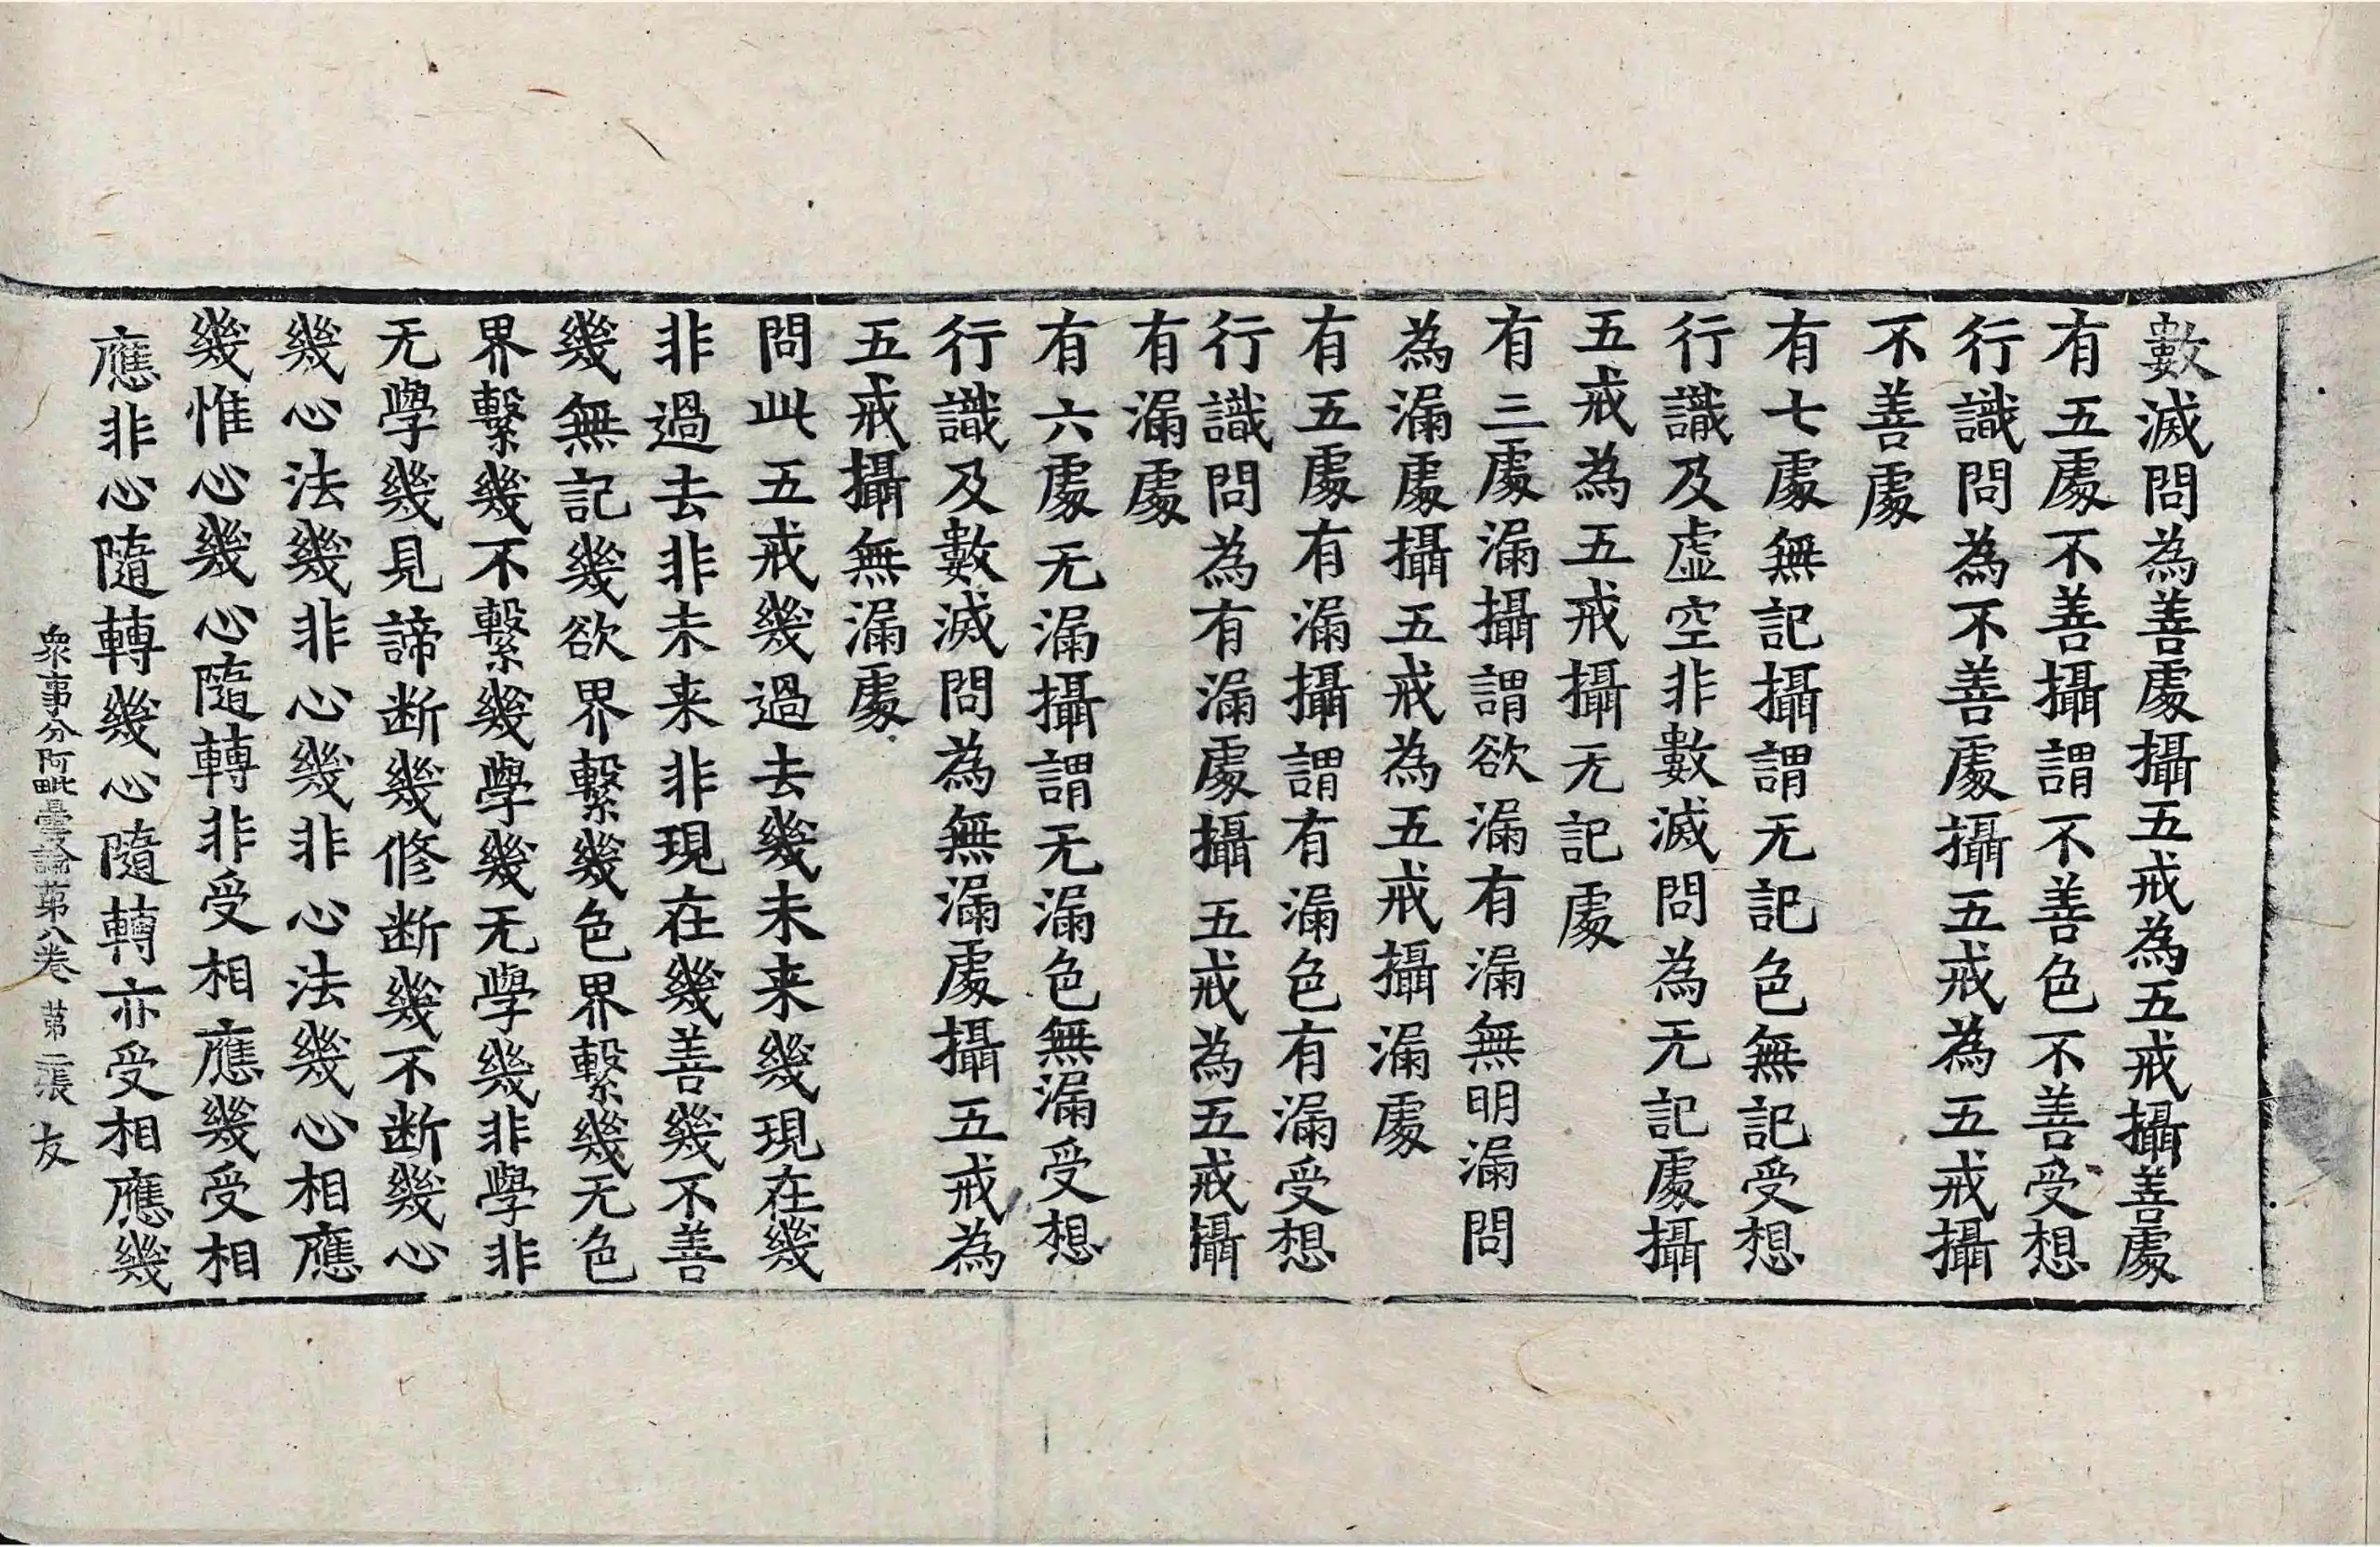 數滅問為善處攝五戒為五戒攝善處
有五處不善攝謂不善色不善受想
行識問為不善處攝五戒為五戒攝
不善處
有七處無記攝謂无記色無記受想
行識及虛空非數滅問為无記處攝
五戒為五戒攝无記處
有三處漏攝謂欲漏有漏無明漏問
為漏處攝五戒為五戒攝漏處
有五處有漏攝謂有漏色有漏受想
行識問為有漏處攝五戒為五戒攝
有漏處
有六處无漏攝謂无漏色無漏受想
行識及數滅問為無漏處攝五戒為
五戒攝無漏處
問此五戒幾過去幾未来幾現在幾
非過去非未来非現在幾善幾不善
幾無記幾欲界繫幾色界繫幾无色
界繫幾不繫幾學幾无學幾非學非
无學幾見諦断幾修断幾不断幾心
幾心法幾非心幾非心法幾心相應
幾惟心幾心隨轉非受相應幾受相
應非心隨轉幾心隨轉亦受相應幾
衆事分阿毗曇論苐八卷 苐二張 友